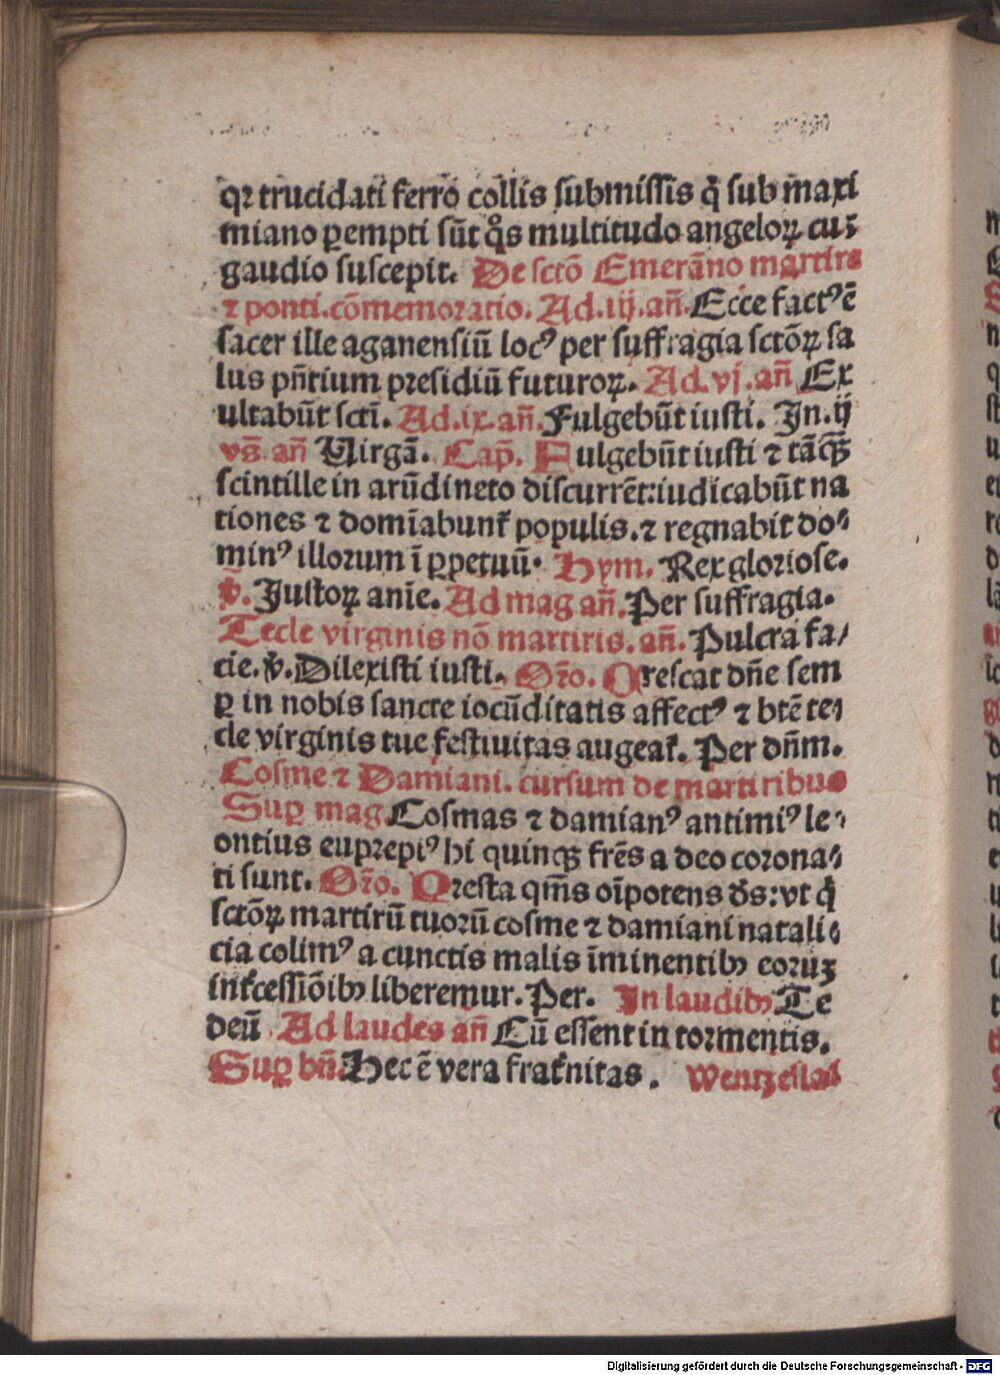 qꝛ trucidati ferro collis submissis q̄ sub maxi
miano ꝑempti sūt q̊s multitudo angeloꝝ cuꝫ
gaudio suscepit. De sctō Emerāno martirs
⁊ ponti. cōmemoratio. Ad. iij. an̄. Ecce factꝰ ē
sacer ille aganensiū locꝰ per suffragia sctōꝝ sa
lus pn̄tium presidiū futuroꝝ. Ad. vj. an̄ Ex
ultabūt sctī. Ad. ix. an̄. Fulgebūt iusti. In. ij
vs̄. an̄ Virgā. Cap̄. Fulgebūt iusti ⁊ tāqꝫ
scintille in arūdineto discurrēt: iudicabūt na
tiones ⁊ domīabunt᷑ populis. ⁊ regnabit do⸗
minꝰ illorum ī ꝑpetuū. Hym. Rex gloriose.
v̄. Iustoꝝ anīe. Ad mag an̄. Per suffragia.
Tecle virginis nō martiris. an̄. Pulcra fa/
cie. v̄. Dilexisti iusti. Or̄o. Crescat dn̄e sem
ꝑ in nobis sancte iocūditatis affectꝰ ⁊ btē te⸗
cle virginis tue festiuitas augeat᷑. Per dn̄m.
Cosme ⁊ Damiani. cursum de martiribus
Suꝑ mag. Cosmas ⁊ damianꝰ antimiꝰ le⸗
ontius euprepiꝰ hi quinqꝫ frēs a deo corona⸗
ti sunt. Or̄o. Presta qm̄s oīpotens ds̄: vt q̄
sctōꝝ martirū tuorū cosme ⁊ damiani natali⸗
cia colimꝰ a cunctis malis īminentibꝫ eoruꝫ
int᷑cessiōibꝫ liberemur. Per. In laudibꝫ Te
deū. Ad laudes an̄ Cū essent in tormentis.
Suꝑ bn̄. Hec ē vera frat᷑nitas. Wentzeslai
Digitalisierung gefördert durch die Deutsche Forschungsgemeinschaft - DFG